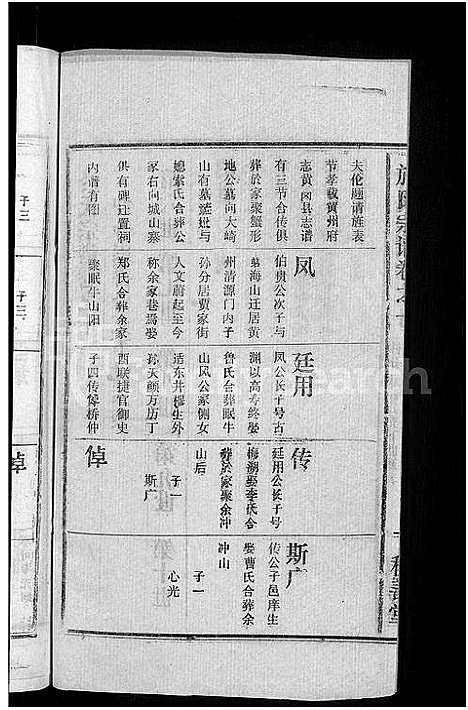 夫伦题请旌表
节孝载黄州府
志黄冈县志谱
有三节合传俱
葬於家聚蟹形
地公墓向大崎
山有墓志妣与
媳索氏合葬公
冢右向城山寨
俱有碑迁置祠
内谱有图
凤
伯贵公次子与
弟海山迁居黄
州清源门内子
孙分居贾家街
人文蔚起至今
称余家巷焉娶
郑氏合葬余家
聚眠牛山阳
廷用
凤公长子号古
渊以高寿终娶
鲁氏合葬眠牛
山凤公冢侧女
适东井穆生外
孙天颜万历丁
酉联捷官御史
子四传倬桥仲
传
廷用公长子号
梅湖娶李氏合
葬於家聚余冲
山后
子一
斯广
倬
斯广
传公子邑庠生
娶曹氏合葬余
冲山
子一
心光
子三